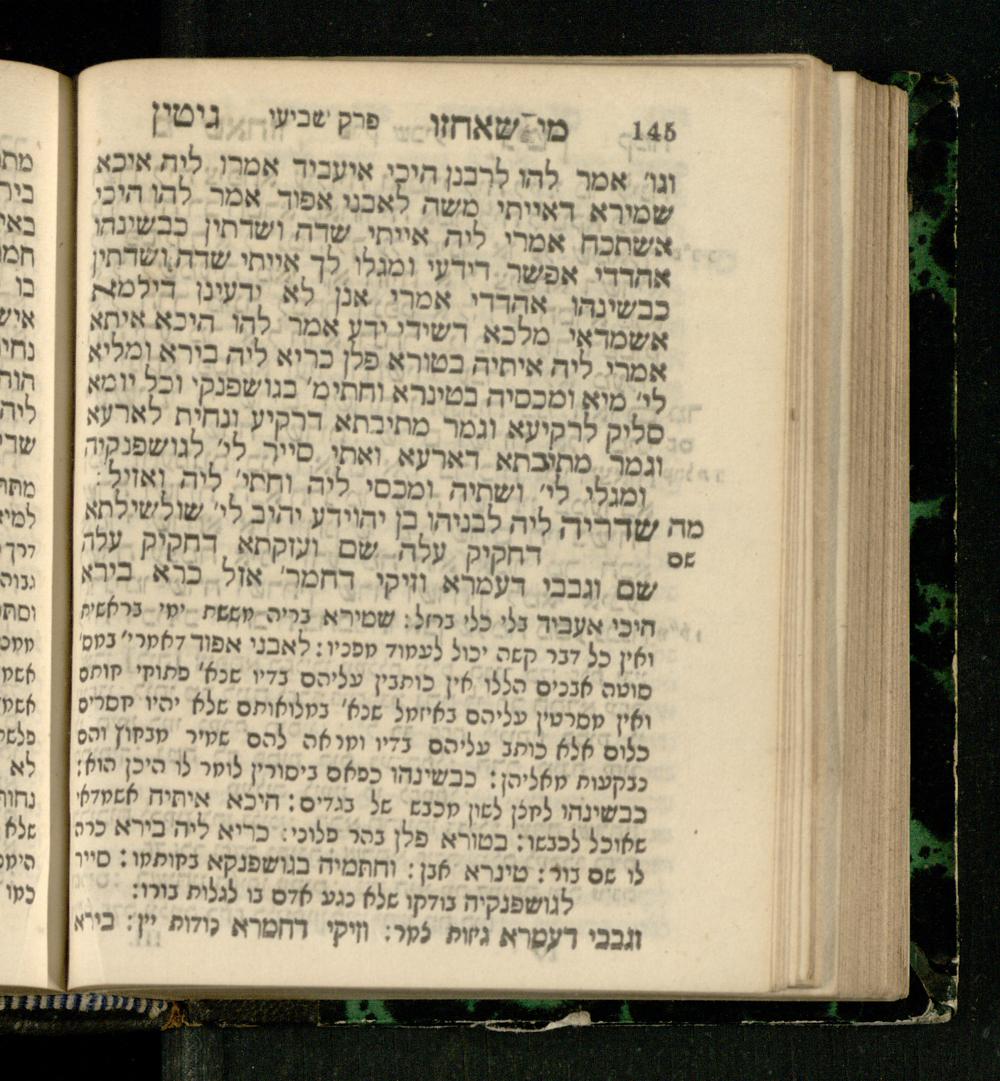 145 מי שאחזו פרק שביעי גיטין
וגו׳ אמר להו לרבנן היכי איעביד אמרו ליה איכא
שמירא דאייתי משה לאבני אפוד אמר להו היכי
אשתכח אמרי ליה אייתי שדה ושדתין כבשינהו
אהדדי אפשר דידעי ומגלו לך אייתי שדה ושדתין
כבשינהו אהדדי אמרי אנן לא ידעינן דילמא
אשמדאי מלכא דשידי ידע אמר להו היכא איתא
אמרי ליה איתיה בטורא פלן כריא ליה בירא ומליא
לי׳ מיא ומכסיה בטינרא וחתימ׳ בגושפנקי וכל יומא
סליק לרקיעא וגמר מתיבתא דרקיע ונחית לארעא
וגמר מתיבתא דארעא ואתי סייר לי׳ לגושפנקיה
ומגלי לי׳ ושתיה ומכסי ליה וחתי׳ ליה ואזיל :
מה שדריה ליה לבניהו בן יהוידע יהיב לי׳ שולשילתא
שם דחקיק עלה שם ועזקתא דחקיק עלה
שם וגבבי דעמרא וזיקי דחמר׳ אזל כרא בירא
היכי אעביד בלי כלי ברזל : שמירא בריה מששת ימי בראשית
ואין כל דבר קשה יכול לעמוד מפניו : לאבני אפוד דאמרי׳ במס׳
סוטה אבנים הללו אין כותבין עליהם בדיו שנא׳ פתוחי חותם
ואין מסרטין עליהם באיזמל שנא׳ במלואותם שלא יהיו חסרים
כלום אלא כותב עליהם בדיו ומראה להם שמיר מבחוץ והם
נבקעות מאליהן : כבשינהו כפאם ביסורין לומר לו היכן הוא :
כבשינהו לחכן לשון מכבש של בגדים : היכא איתיה אשמדאי
שאוכל לכבשו : בטורא פלן בהר פלוני : כריא ליה בירא כרה
לו שם בור : טינרא אבן : וחתמיה בגושפנקא בחותמו : סייר
לגושפנקיה בודקו שלא נגע אדם בו לגלות בורו :
וגבבי דעמרא גיזות צמר : וזיקי דחמרא נודות יין : בירא